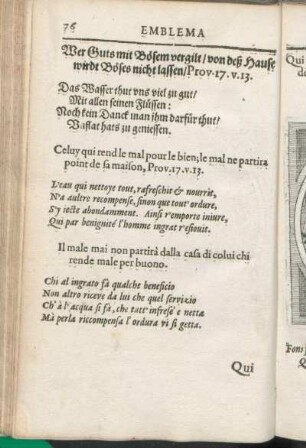 76
EMBLEMA
Wer Guts mit Bösem vergilt / von deß Hause
wirdt Böses nicht lassen / Prov. 17. v. 13.
Das Wasser thut vns viel zu gut /
Mit allen seinen Flüssen:
Noch kein Danck man ihm darfür thut /
Vnflat hats zu geniessen.
Celuy qui rend le mal pour le bien; le mal ne partira
point de sa maison, Prov. 17. v. 13.
L'eau qui nettoye tout, rafreschit & nourrit,
N'a aultre recompense, sinon que tout ordure,
S'y iecte abondamment. Ainsi r'emporte iniure,
Qui par benignité l'homme ingrat resiouit.
Il male mai non partirà dalla casa di colui chi
rende male per buono.
Chi al ingrato fà qualche beneficio
Non altro riceve da lui che quel servizio
Ch'à l'acqua si fà, che tutt' infresc' e netta
Mà perla riccompensa l'ordura vi si getta.
Qui
Qui
Fons